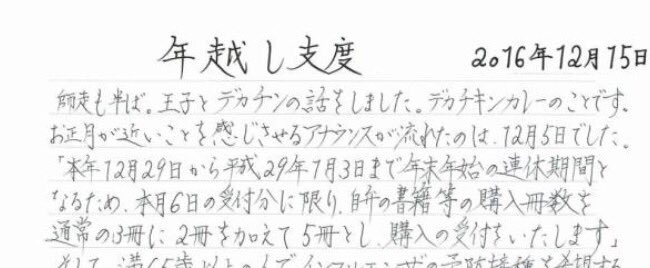 年越し支度
2016年12月15日
師走も半ば。王子とデカチンの話をしました。デカチキンカレーのことです。
お正月が近いことを感じさせるアナウンスが流れたのは、12月5日でした。
「本年12月29日から平成29年1月3日まで年末年始の連休期間と
なるため、本月6日の受付分に限り、自弁の書籍等の購入冊数を
通常の3冊に2冊を加えて5冊とし、購入の受付をいたします」
そして、満65歳以上の人でインフルエンザの予防接種を希望する